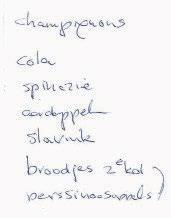 champignons
cola
spinazie
aardappel
slavink
broodjes
perssinaasappels